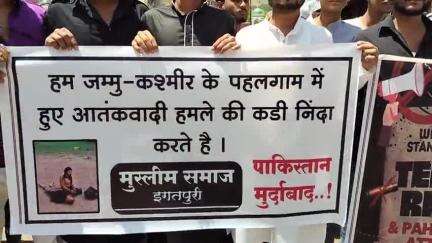 हम जम्मु-कश्मीर के पहलगाम में
हुए आतंकवादी हमले की कडी निंदा
करते है ।
मुस्लीम समाज
इगतपुरी
पाकिस्तान
मुर्दाबाद..!
STAN
& PAH